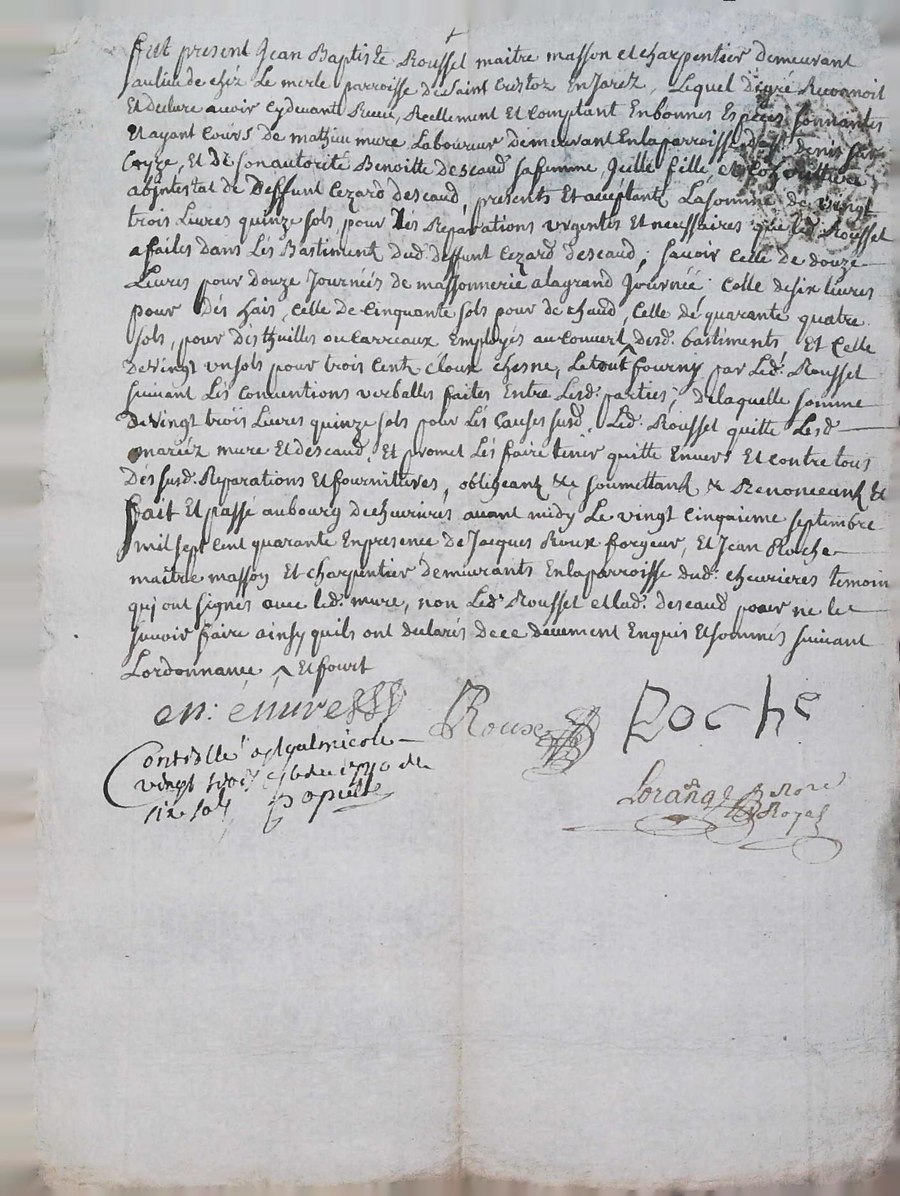 fut present Jean Baptiste Rousset maitre masson et charpentier demeurant
au lieu de chez Le merle parroisse de Saint Cristoz En Jarez, Lequel de gré Reconnoit
Et declare avoir cy devant Receu, Reellement Et Comptant En bonnes Especes sonnantes
Et ayant Cours de mathieu mure Laboureur demeurant En la parroisse de st denis sur
Coyze, Et de son autorité Benoitte descaud sa femme, Icelle fille, et
abintestat de Deffunt Cezard descaud, presents Et acceptants La Somme de vingt
trois Livres quinze sols pour Les Reparations urgentes Et necessaires que led. Rousset
a faites dans Les Bastiment dud. deffunt Cezard descaud, savoir Celle de douze
Livres pour douze Journées de massonnerie a la grand Journée: Celle de six livres
pour des hais, Celle de Cinquante sols pour de chaud, Celle de quarante quatre
sols, pour des thuilles ou carreaux Employés au Couvert desd. bastiments, Et Celle
de vingt un sols pour trois Cents cloux chesne, Le tout fourny par Led. Rousset
suivant Les Conventions verballes faites Entre Lesd. parties, de laquelle somme
de vingt trois Livres quinze sols pour Les Causes susd. Led. Rousset quitte Lesd.
mariéz mure Et descaud, Et promet Les faire tenir quitte Envers Et contre tous
Des susd. Reparations Et fournitures, obligeant & soumettant & Renonceant &
fait Et passé au bourg de chevrieres avant midy Le vingt Cinquieme septembre
mil sept cent quarante En presence de Jacques Roux forgeur, Et Jean Roche
maitre masson Et charpentier demeurants En la parroisse dud. chevrieres temoin
qui ont signés avec led. mure, non Led. Rousset et lad. descaud pour ne le
savoir faire ainsy quils ont declarés de ce deuement Enquis Et sommés suivant
Lordonnance ^ Et fourt
m: mure
Roux
Roche
Controllé a st galmier le
vingt six 7bre 1740 Rcu
six sols
Lorange Nore
Royal